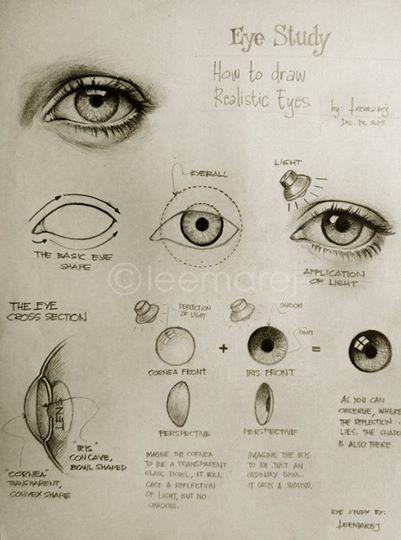 Eye Study
How to draw
Realistic Eyes
by: leemarej
EYEBALL
LIGHT
THE BASIC EYE
SHAPE
APPLICATION
OF LIGHT
©leemarej
THE EYE
CROSS SECTION
REFLECTION
OF LIGHT
SHADOW
LIGHT
+
=
CORNEA FRONT
IRIS FRONT
LENS
PERSPECTIVE
PERSPECTIVE
"IRIS"
CONCAVE,
BOWL SHAPED
"CORNEA"
TRANSPARENT,
CONVEX SHAPE
IMAGINE THE CORNEA
TO BE A TRANSPARENT
GLASS BOWL, IT WILL
CAST A REFLECTION
OF LIGHT, BUT NO
SHADOW.
IMAGINE THE IRIS
TO BE JUST AN
ORDINARY BOWL.
IT CASTS A SHADOW.
AS YOU CAN
OBSERVE, WHERE
THE REFLECTION
LIES. THE SHADO
IS ALSO THERE.
EYE STUDY BY:
LEEMAREJ